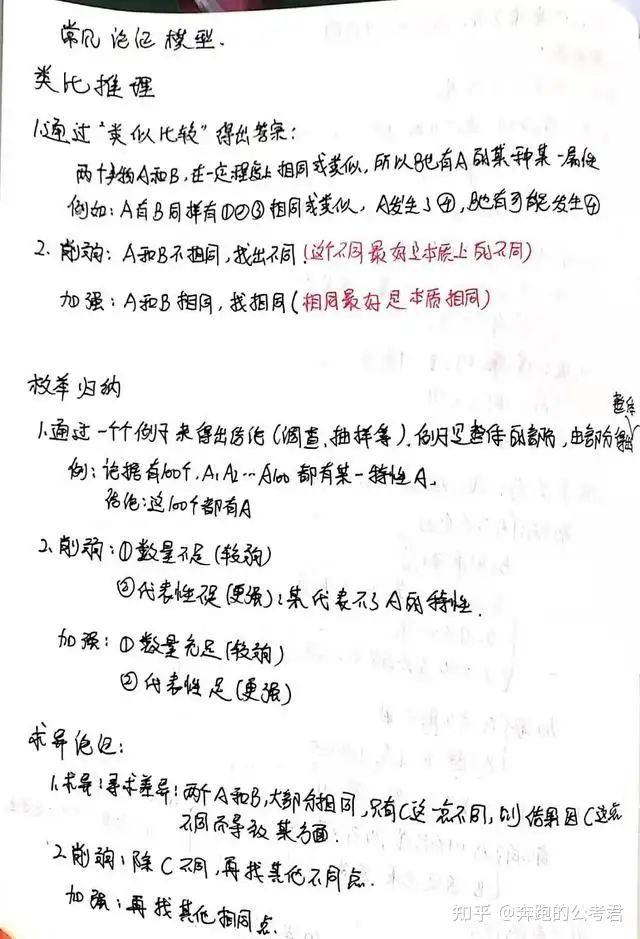 常见论证模型.
类比推理
1.通过"类似比较"得出答案:
两个事物A和B,在一定程度上相同或类似,所以B也有A的某种某一属性
例如:A有B同样有①②③相同或类似, A发生了④,B也有可能发生④
2.削弱:A和B不相同,找出不同(这个不同最好是本质上的不同)
加强:A和B相同,找相同(相同最好是本质相同)
枚举归纳
1.通过一个个例子来得出结论(调查、抽样等).例子是整体的部分,由部分得出整体
例:论据有100个,A₁A₂…A₁₀₀都有某一特性A.
结论:这100个都有A
2.削弱:①数量不足(较弱)
②代表性不足(更强):某代表不了A的特性.
加强:①数量充足(较弱)
②代表性足(更强)
求异论证:
1.求异:寻求差异:两个A和B,大部分相同,只有C这一点不同,则结果因C这点
不同而导致某方面.
2.削弱:除C不同,再找其他不同点.
加强:再找其他相同点.
知乎 @奔跑的公考君